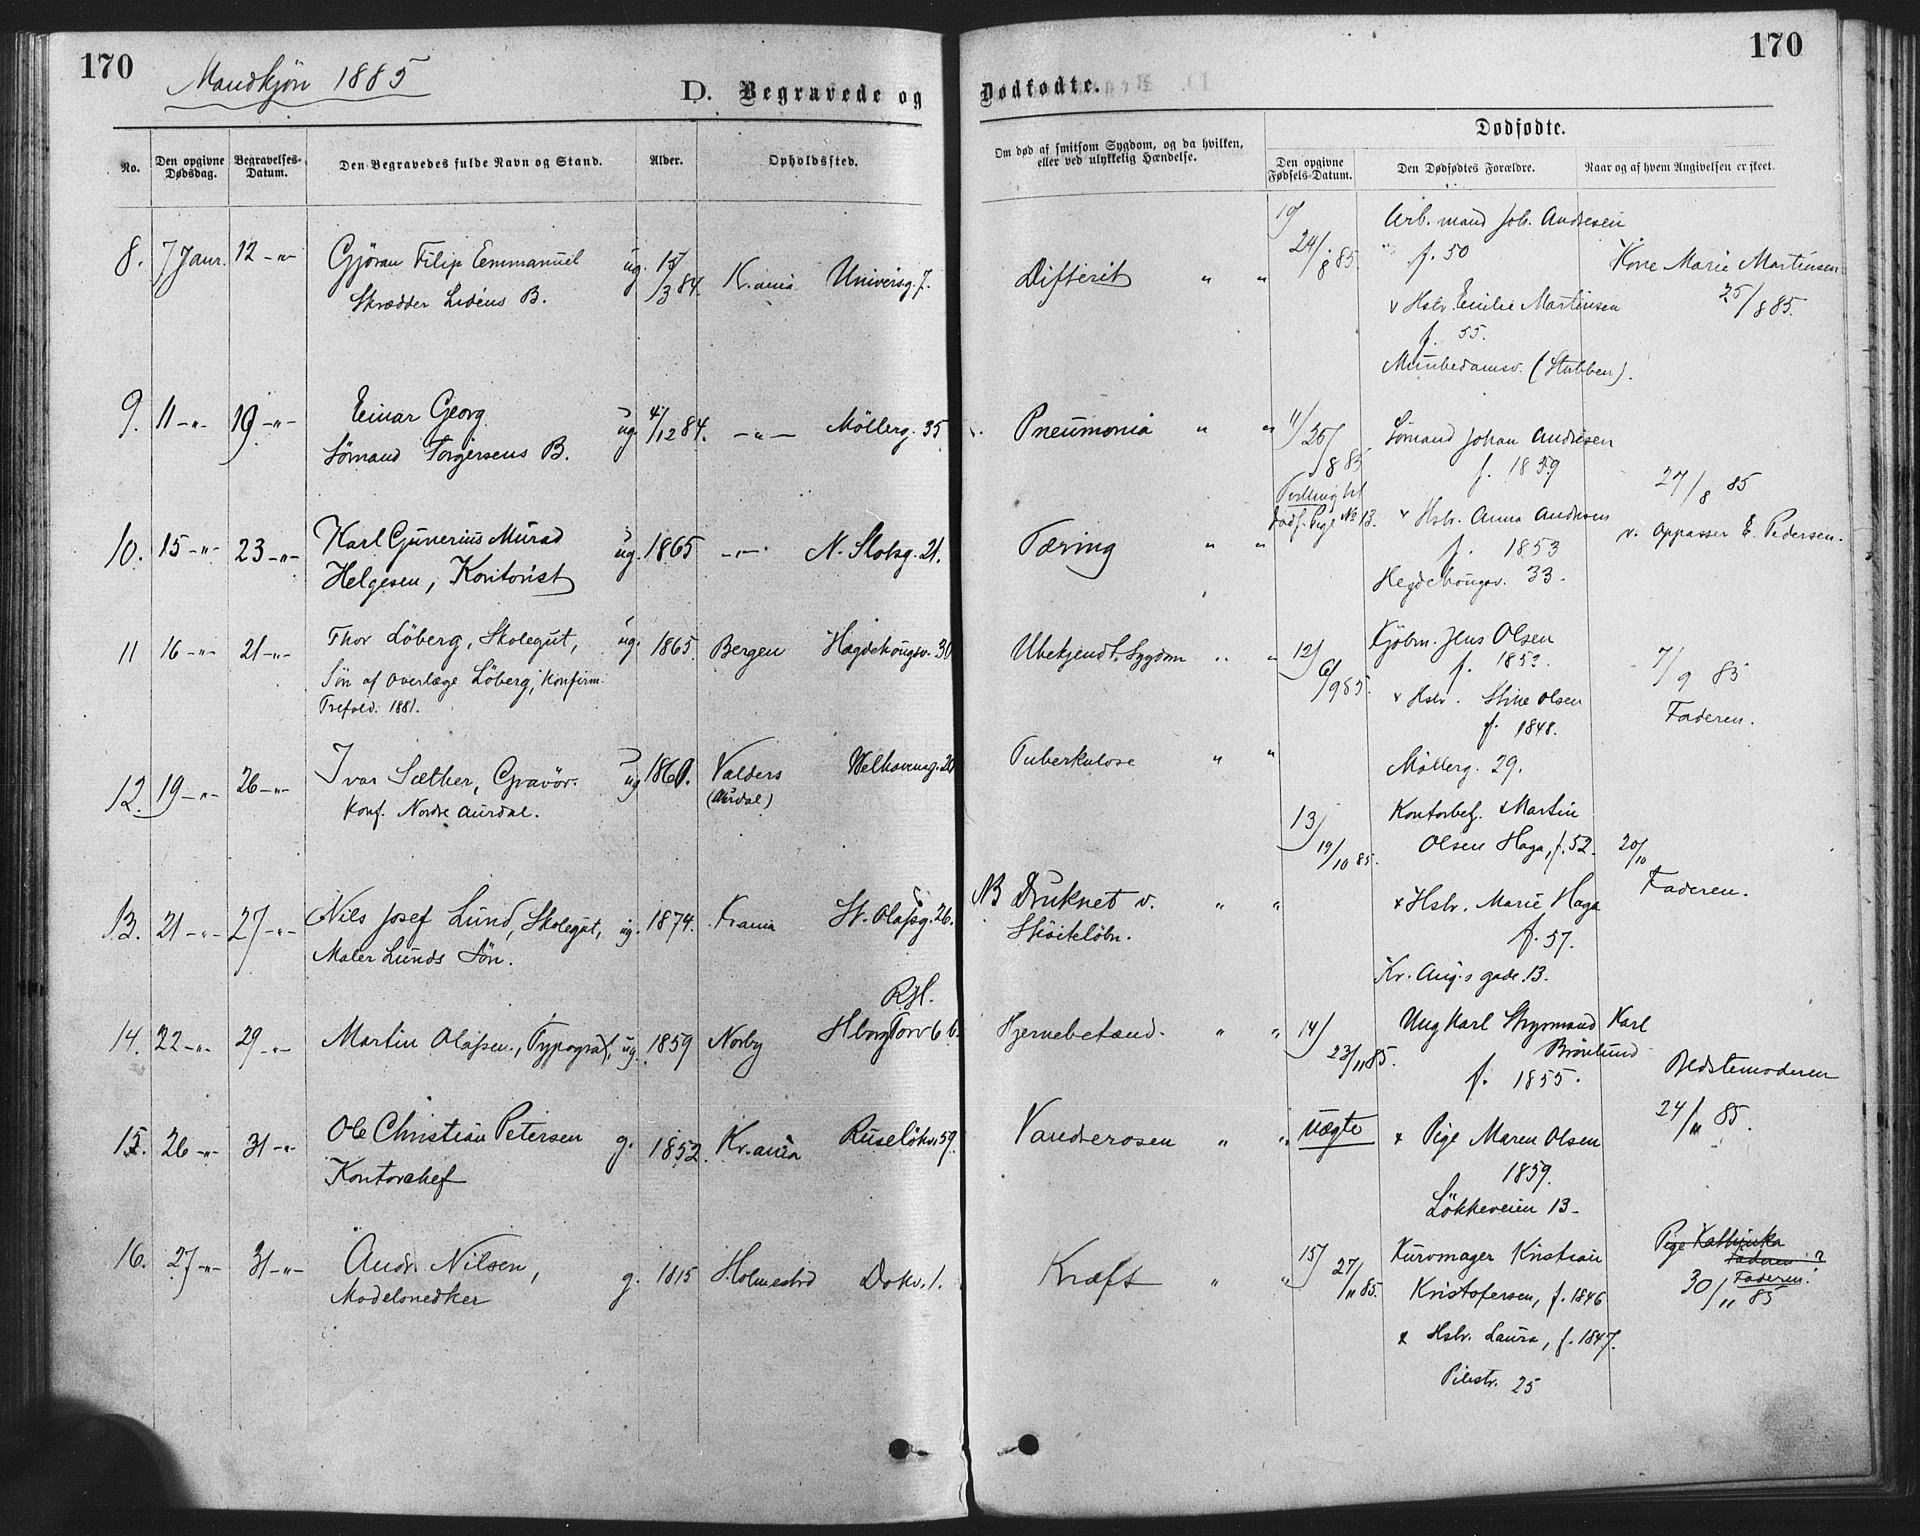 170
Mandkjøn 1885
D. Begravede og
No.
Den opgivne Dødsdag.
Begravelses-Datum.
Den Begravedes fulde Navn og Stand.
Alder.
Opholdssted.
8. 7 Janr. 12 -"- Gjøran Filip Emmanuel ug. 15/3 84. Kr.ania Universg. 7.
Skrædder Lidéns B.
9. 11 -"- 19 -"- Einar Georg ug. 4/12 84. -"- Møllerg. 35
Sømand Torgersens B.
10. 15 -"- 23 -"- Karl Gunerius Murad ug. 1865 -"- N. Slotsg. 21.
Helgesen, Kontorist
11 16 -"- 21 -"- Thor Löberg, Skolegut, ug. 1865. Bergen Hægdehougsv. 30
Søn af Overlæge Löberg, Konfirm.
Trefold. 1881.
12. 19 -"- 26 -"- Ivar Sæther, Gravör. ug 1860. Valders Welhavensg. 20
Konf. Nordre Aurdal. (Aurdal)
13. 21 -"- 27 -"- Nils Josef Lund, Skolegut, ug. 1874. Krania St. Olafsg. 26.
Maler Lunds Søn.
14. 22 -"- 29 -"- Martin Olafsen, Typograf, ug. 1859 Norby
Hborg Torv 6 b.
15. 26 -"- 31 -"- Ole Christian Petersen g. 1852. Kr.ania Ruseløkv. 59.
Kontorchef
16. 27 -"- 31 -"- Andr. Nilsen, g. 1815 Holmestrd Dokv. 1.
Modelsnedker
170
Dødfødte.
Om død af smitsom Sygdom, og da hvilken,
eller ved ulykkelig Hændelse.
Dødfødte.
Den opgivne Fødsels-Datum.
Den Dødfødtes Forældre.
Naar og af hvem Angivelsen er skeet.
Difterit " "
Pneumonia " "
Tæring " "
Ubekjendt Sygdom " "
Tuberkulose " "
NB Druknet v. " "
Skøiteløbn.
Hjernebetænd. " "
Vandserosen " "
Kræft " "
10) 24/8 85. Arb.mand Joh. Andresen
f. 50
Kone Marie Martinsen
25/8 85.
& Hstr. Emilie Martinsen
f. 55.
Munkedamsv. (Stubben).
11) 26/8 85 Sømand Johan Andresen
f. 1859
27/8 85
Tvilling til
dødf. Pige No 13.
& Hstr. Anna Andresen
v. Oppasser E. Pedersen.
f. 1853
Hegdehougsv. 33.
12) 6/9 85. Kjøbm. Jens Olsen
f. 1853.
7/9 85
& Hstr. Stine Olsen
Faderen.
f. 1848.
Møllerg. 29.
13) 19/10 85. Kontorbetj. Martin
Olsen Haga, f. 52.
20/10
Faderen.
& Hstr. Marie Haga
f. 57.
Kr. Aug.s gade 13.
14) 23/11 85. Ungkarl Karl
Brönlund
f. 1855.
Bedstemoderen
24/11 85.
uægte
& Pige Maren Olsen
1859.
Løkkeveien 13.
15) 27/11 85. Kurvmager Kristian
Kristofersen, f. 1846
Pige Kathinka
Faderen ?
Faderen.
30/11 85
& Hstr. Laura, f. 1847.
Pilestr. 25